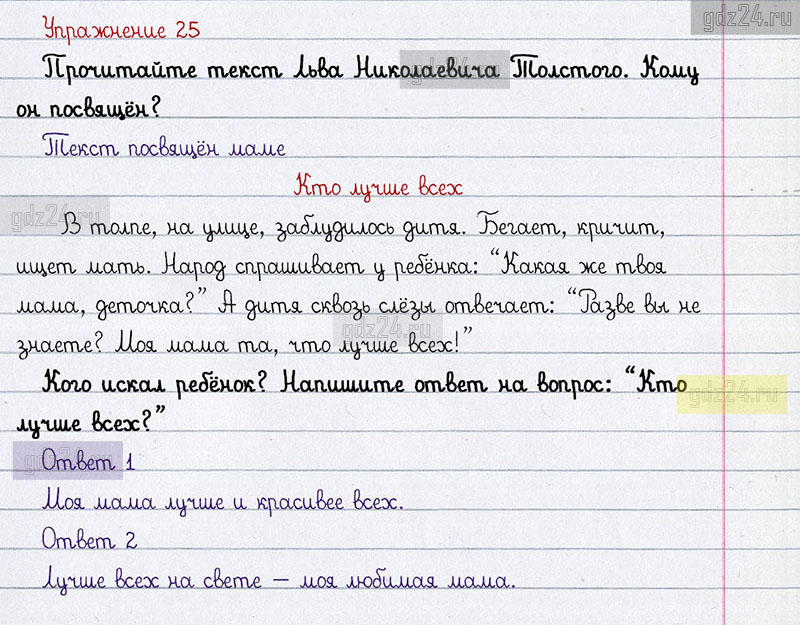 gdz24.ru
Упражнение 25
Прочитайте текст Льва Николаевича Толстого. Кому
он посвящён?
Текст посвящён маме
Кто лучше всех
gdz24.ru
В толпе, на улице, заблудилось дитя. Бегает, кричит,
ищет мать. Народ спрашивает у ребёнка: “Какая же твоя
мама, деточка?” А дитя сквозь слёзы отвечает: “Разве вы не
знаете? Моя мама та, что лучше всех!”
gdz24.ru
Кого искал ребёнок? Напишите ответ на вопрос: “Кто
лучше всех?”
gdz24.ru
Ответ 1
Моя мама лучше и красивее всех.
Ответ 2
Лучше всех на свете – моя любимая мама.